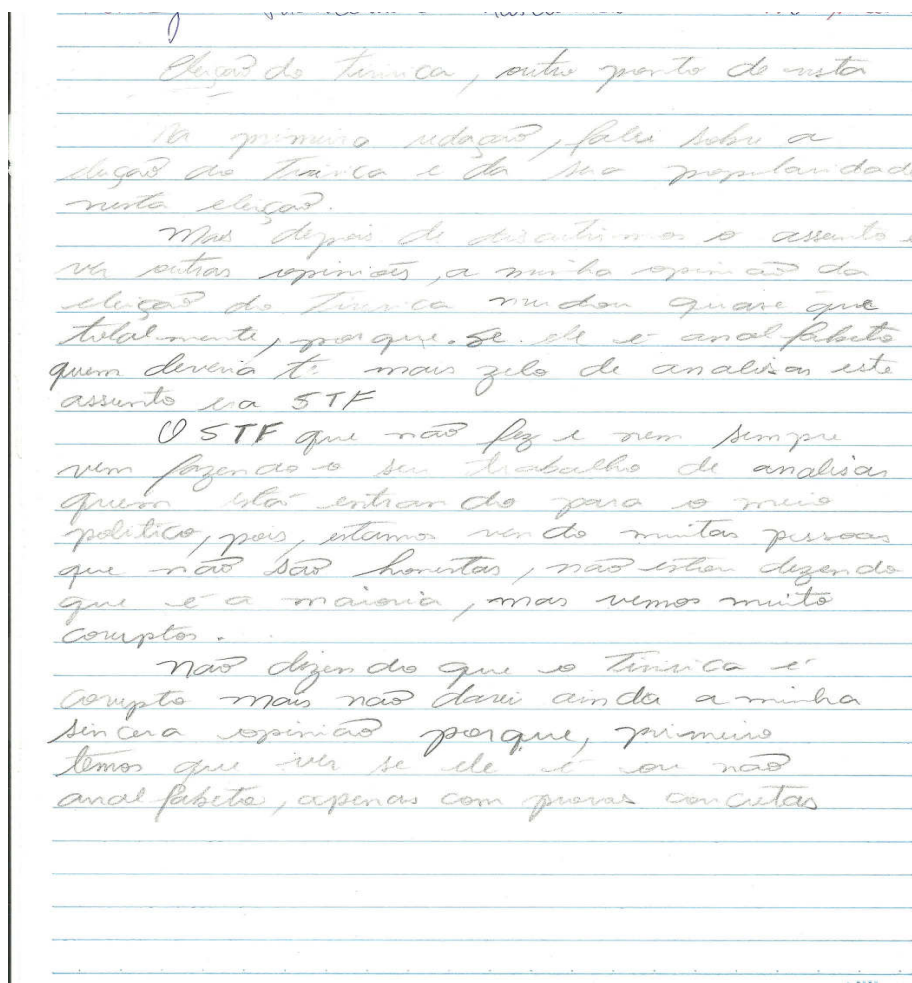 Eleição do Tiririca, outro ponto de vista
Na primeira redação, falei sobre a
eleição do Tiririca e da sua popularidade
nesta eleição.
Mas depois de discutirmos o assunto e
ver outras opiniões, a minha opinião da
eleição do Tiririca mudou quase que
totalmente, porque. se ele é analfabeto
quem deveria te mais zelo de analisar este
assunto era STF
O STF que não fez e nem sempre
vem fazendo o seu trabalho de analisar
quem está entrando para o meio
politico, pois, estamos vendo muitas pessoas
que não são honestas, não estou dizendo
que é a maioria, mas vemos muito
corruptos.
Não dizendo que o Tiririca é
corupto mais não darei ainda a minha
sincera opinião porque, primeiro
temos que ver se ele é ou não
analfabeto, apenas com provas concretas